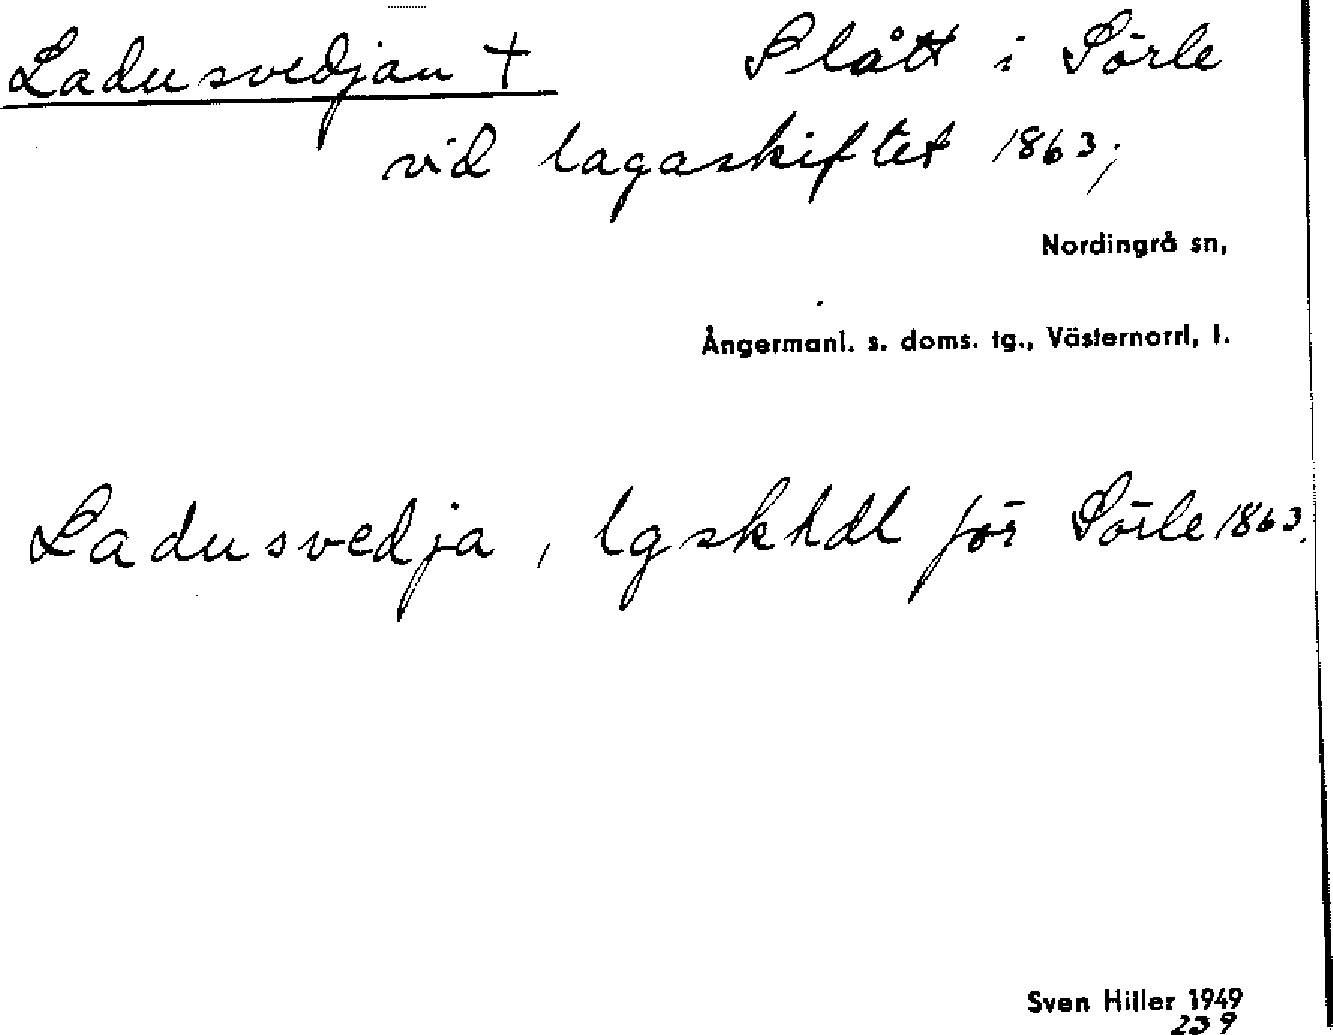 Ladusvedjan + Slått i Sörle
vid lagaskiftet 1863;
Nordingrå sn,
Ångermanl. s. doms. tg., Västernorrl, l.
Ladusvedja, lgskhdl för Sörle 1863.
Sven Hiller 1949
239